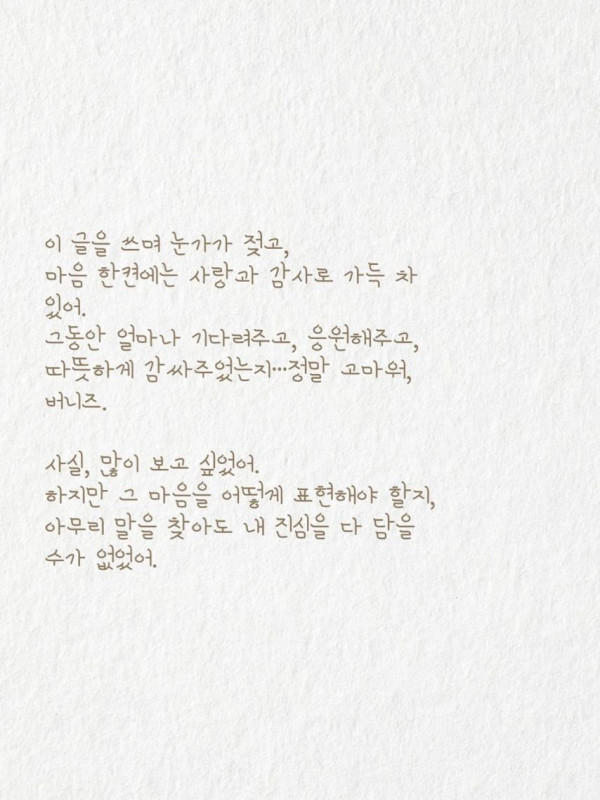 이 글을 쓰며 눈가가 젖고,
마음 한켠에는 사랑과 감사로 가득 차
있어.
그동안 얼마나 기다려주고, 응원해주고,
따뜻하게 감싸주었는지…정말 고마워,
버니즈.
사실, 많이 보고 싶었어.
하지만 그 마음을 어떻게 표현해야 할지,
아무리 말을 찾아도 내 진심을 다 담을
수가 없었어.